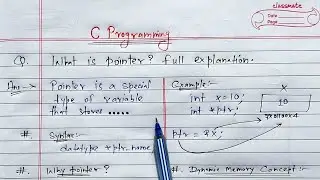 classmate
Date
Page
C Programming
Q. What is pointer? full explanation.
Ans:- Pointer is a special
type of variable
that stores .....
#. Syntax:-
datatype *ptr_name
#. Why pointer?
Example:-
int x=10;
int *ptr;
x
10
ptr = &x;
#. Dynamic Memory Concept:-